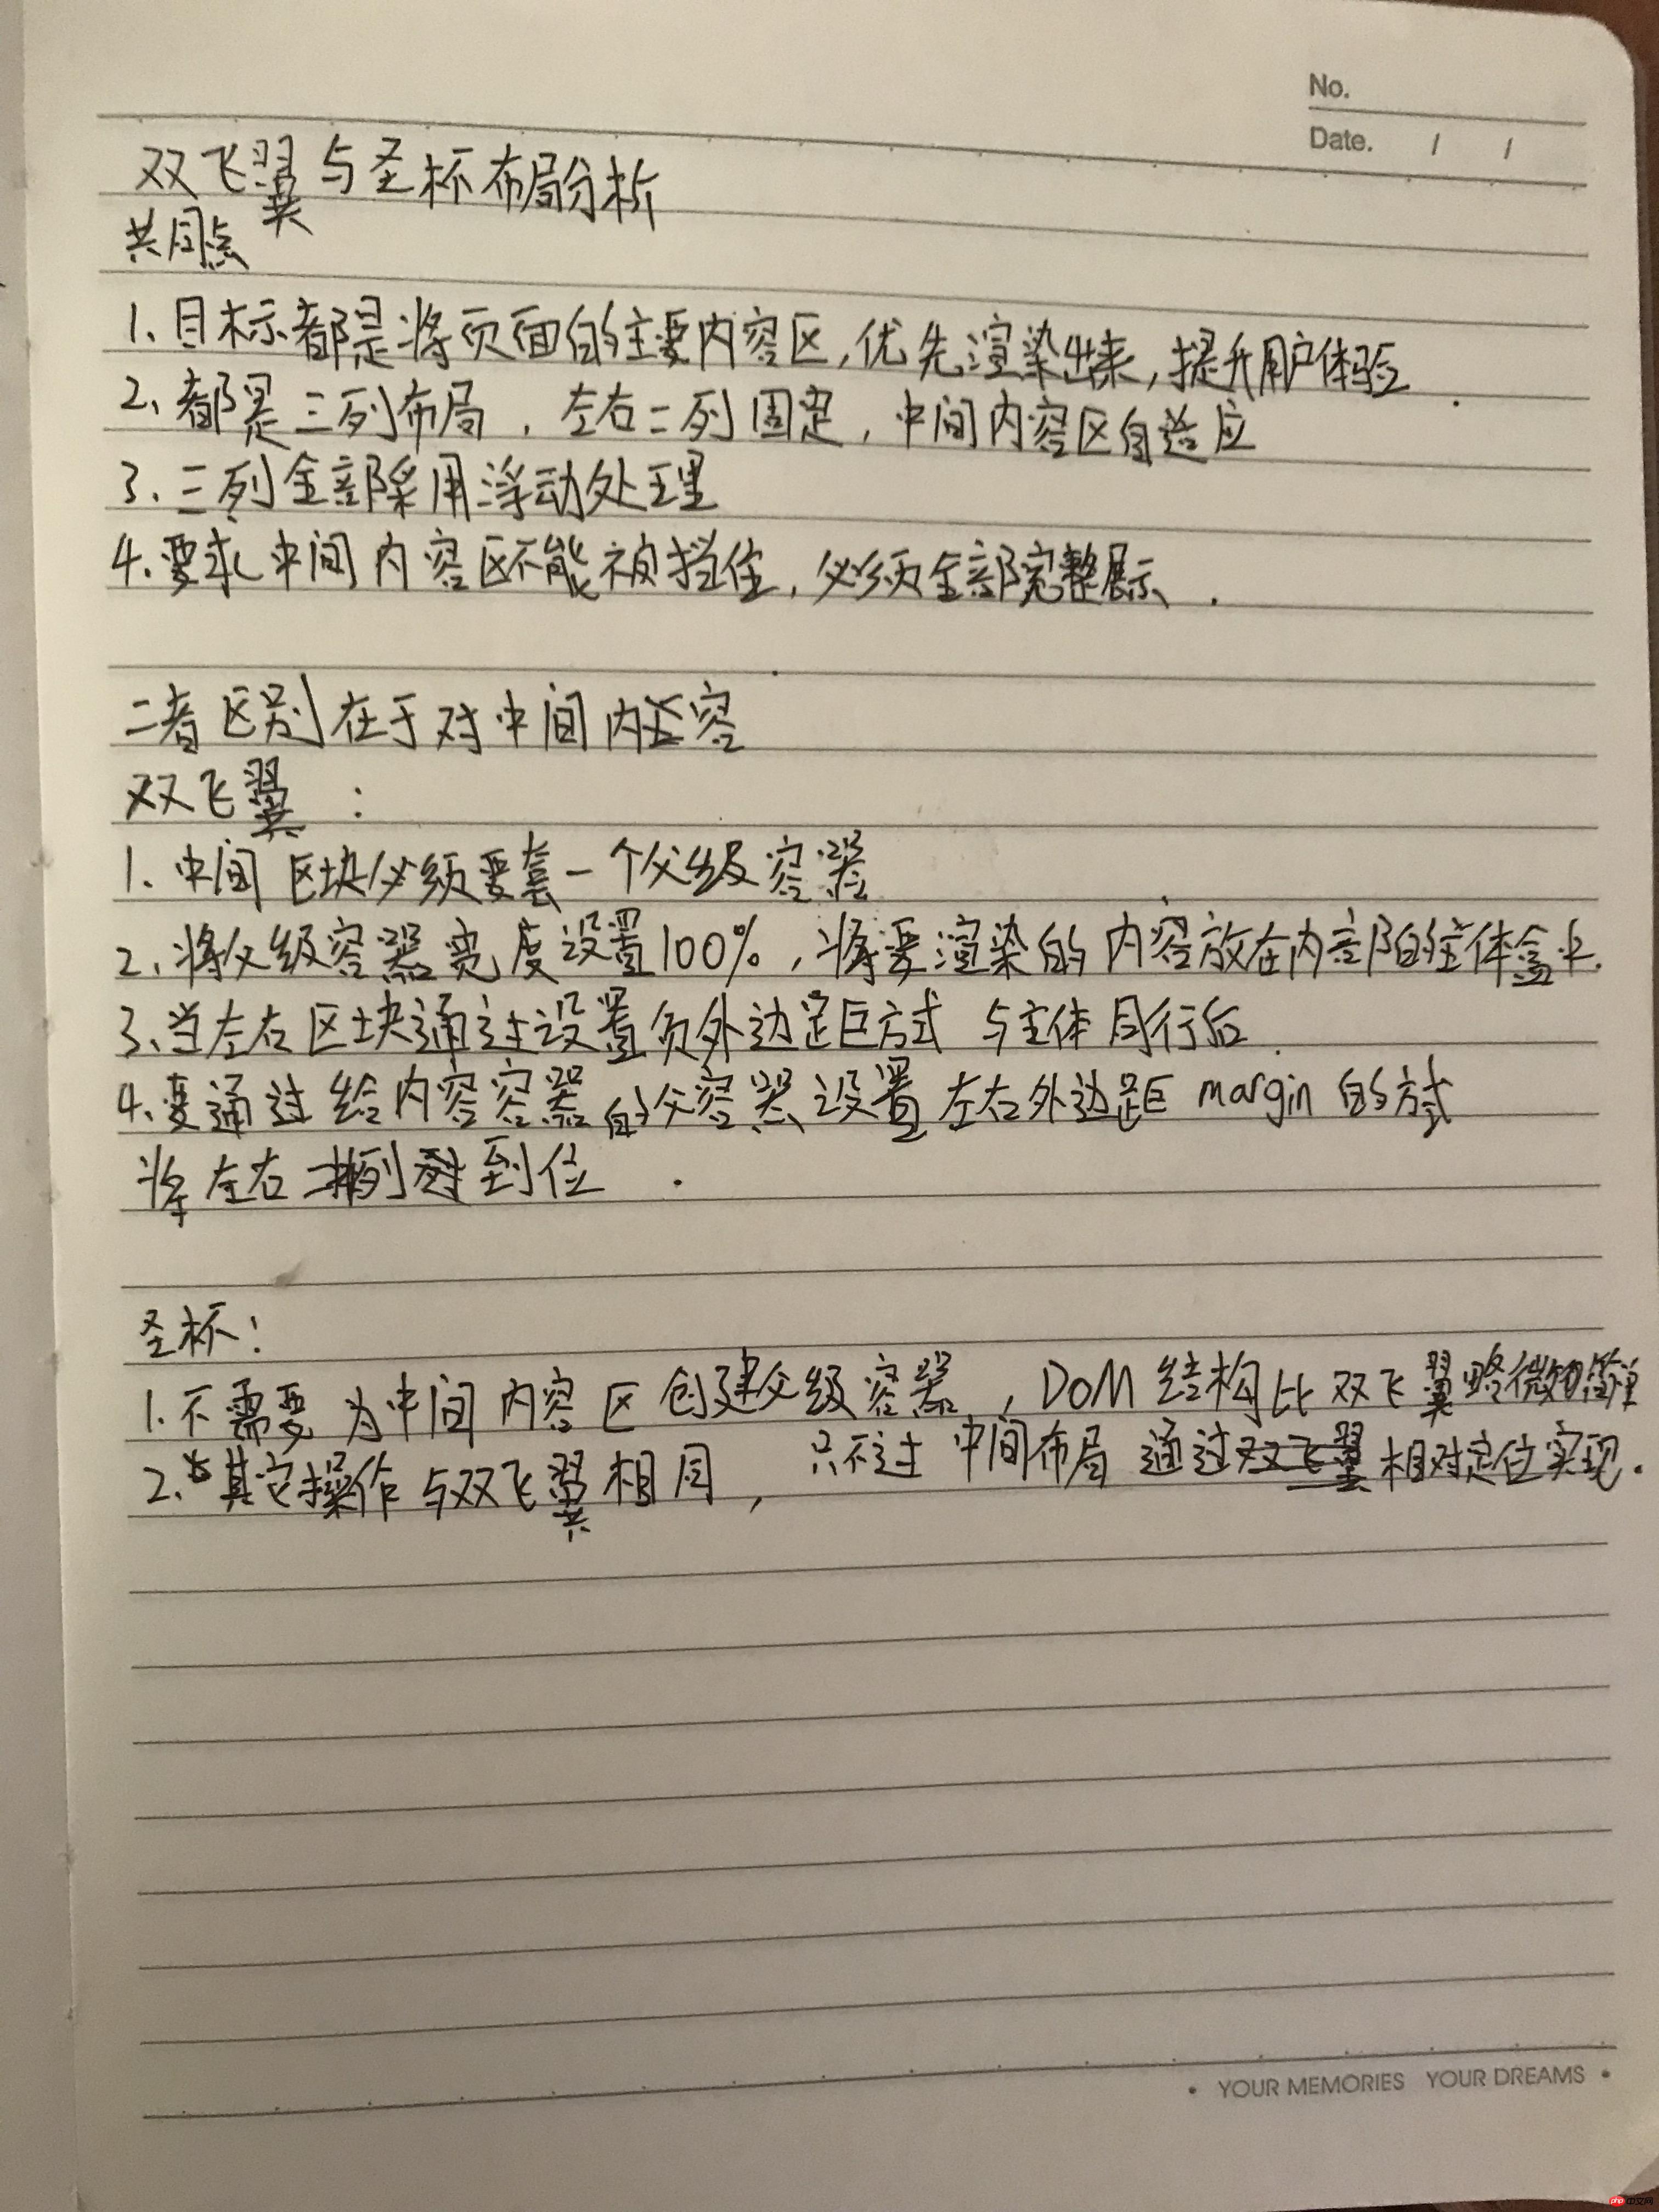 No.
Date. / /
双飞翼与圣杯布局分析
共同点
1、目标都是将页面的主要内容区,优先渲染出来,提升用户体验.
2、都是三列布局,左右二列固定,中间内容区自适应
3、三列全部采用浮动处理
4、要求中间内容区不能被挡住,必须全部完整展示.
二者区别在于对中间内容
双飞翼:
1、中间区块必须要套一个父级容器
2、将父级容器宽度设置100%,将要渲染的内容放在内部的主体盒
3、当左右区块通过设置负外边距方式 与主体同行后.
4、要通过给内容容器的父容器设置左右外边距 margin 的方式
将左右二列到位.
圣杯:
1.不需要为中间内容区创建父级容器,DOM结构比双飞翼略微简单
2、其它操作与双飞翼相同,只不过中间布局通过相对定位实现.
• YOUR MEMORIES YOUR DREAMS •
php 中文网